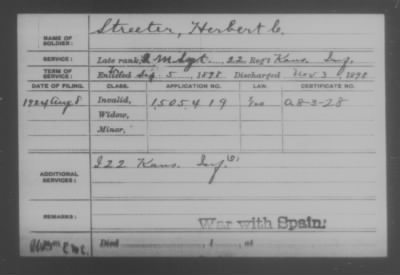 NAME OF SOLDIER: Streeter, Herbert C.
SERVICE: Late rank, Q M Sgt. 22 Reg't Kans. Inf.
TERM OF SERVICE: Enlisted 5, 1898. Discharged Nov. 3, 1898
DATE OF FILING. CLASS. APPLICATION NO. LAW. CERTIFICATE NO.
1924 Aug 8 Invalid, 1505419
Widow,
Minor,
ADDITIONAL SERVICES: I 22 Kans. Inf.
REMARKS: War with Spain.
Died , 1 , at